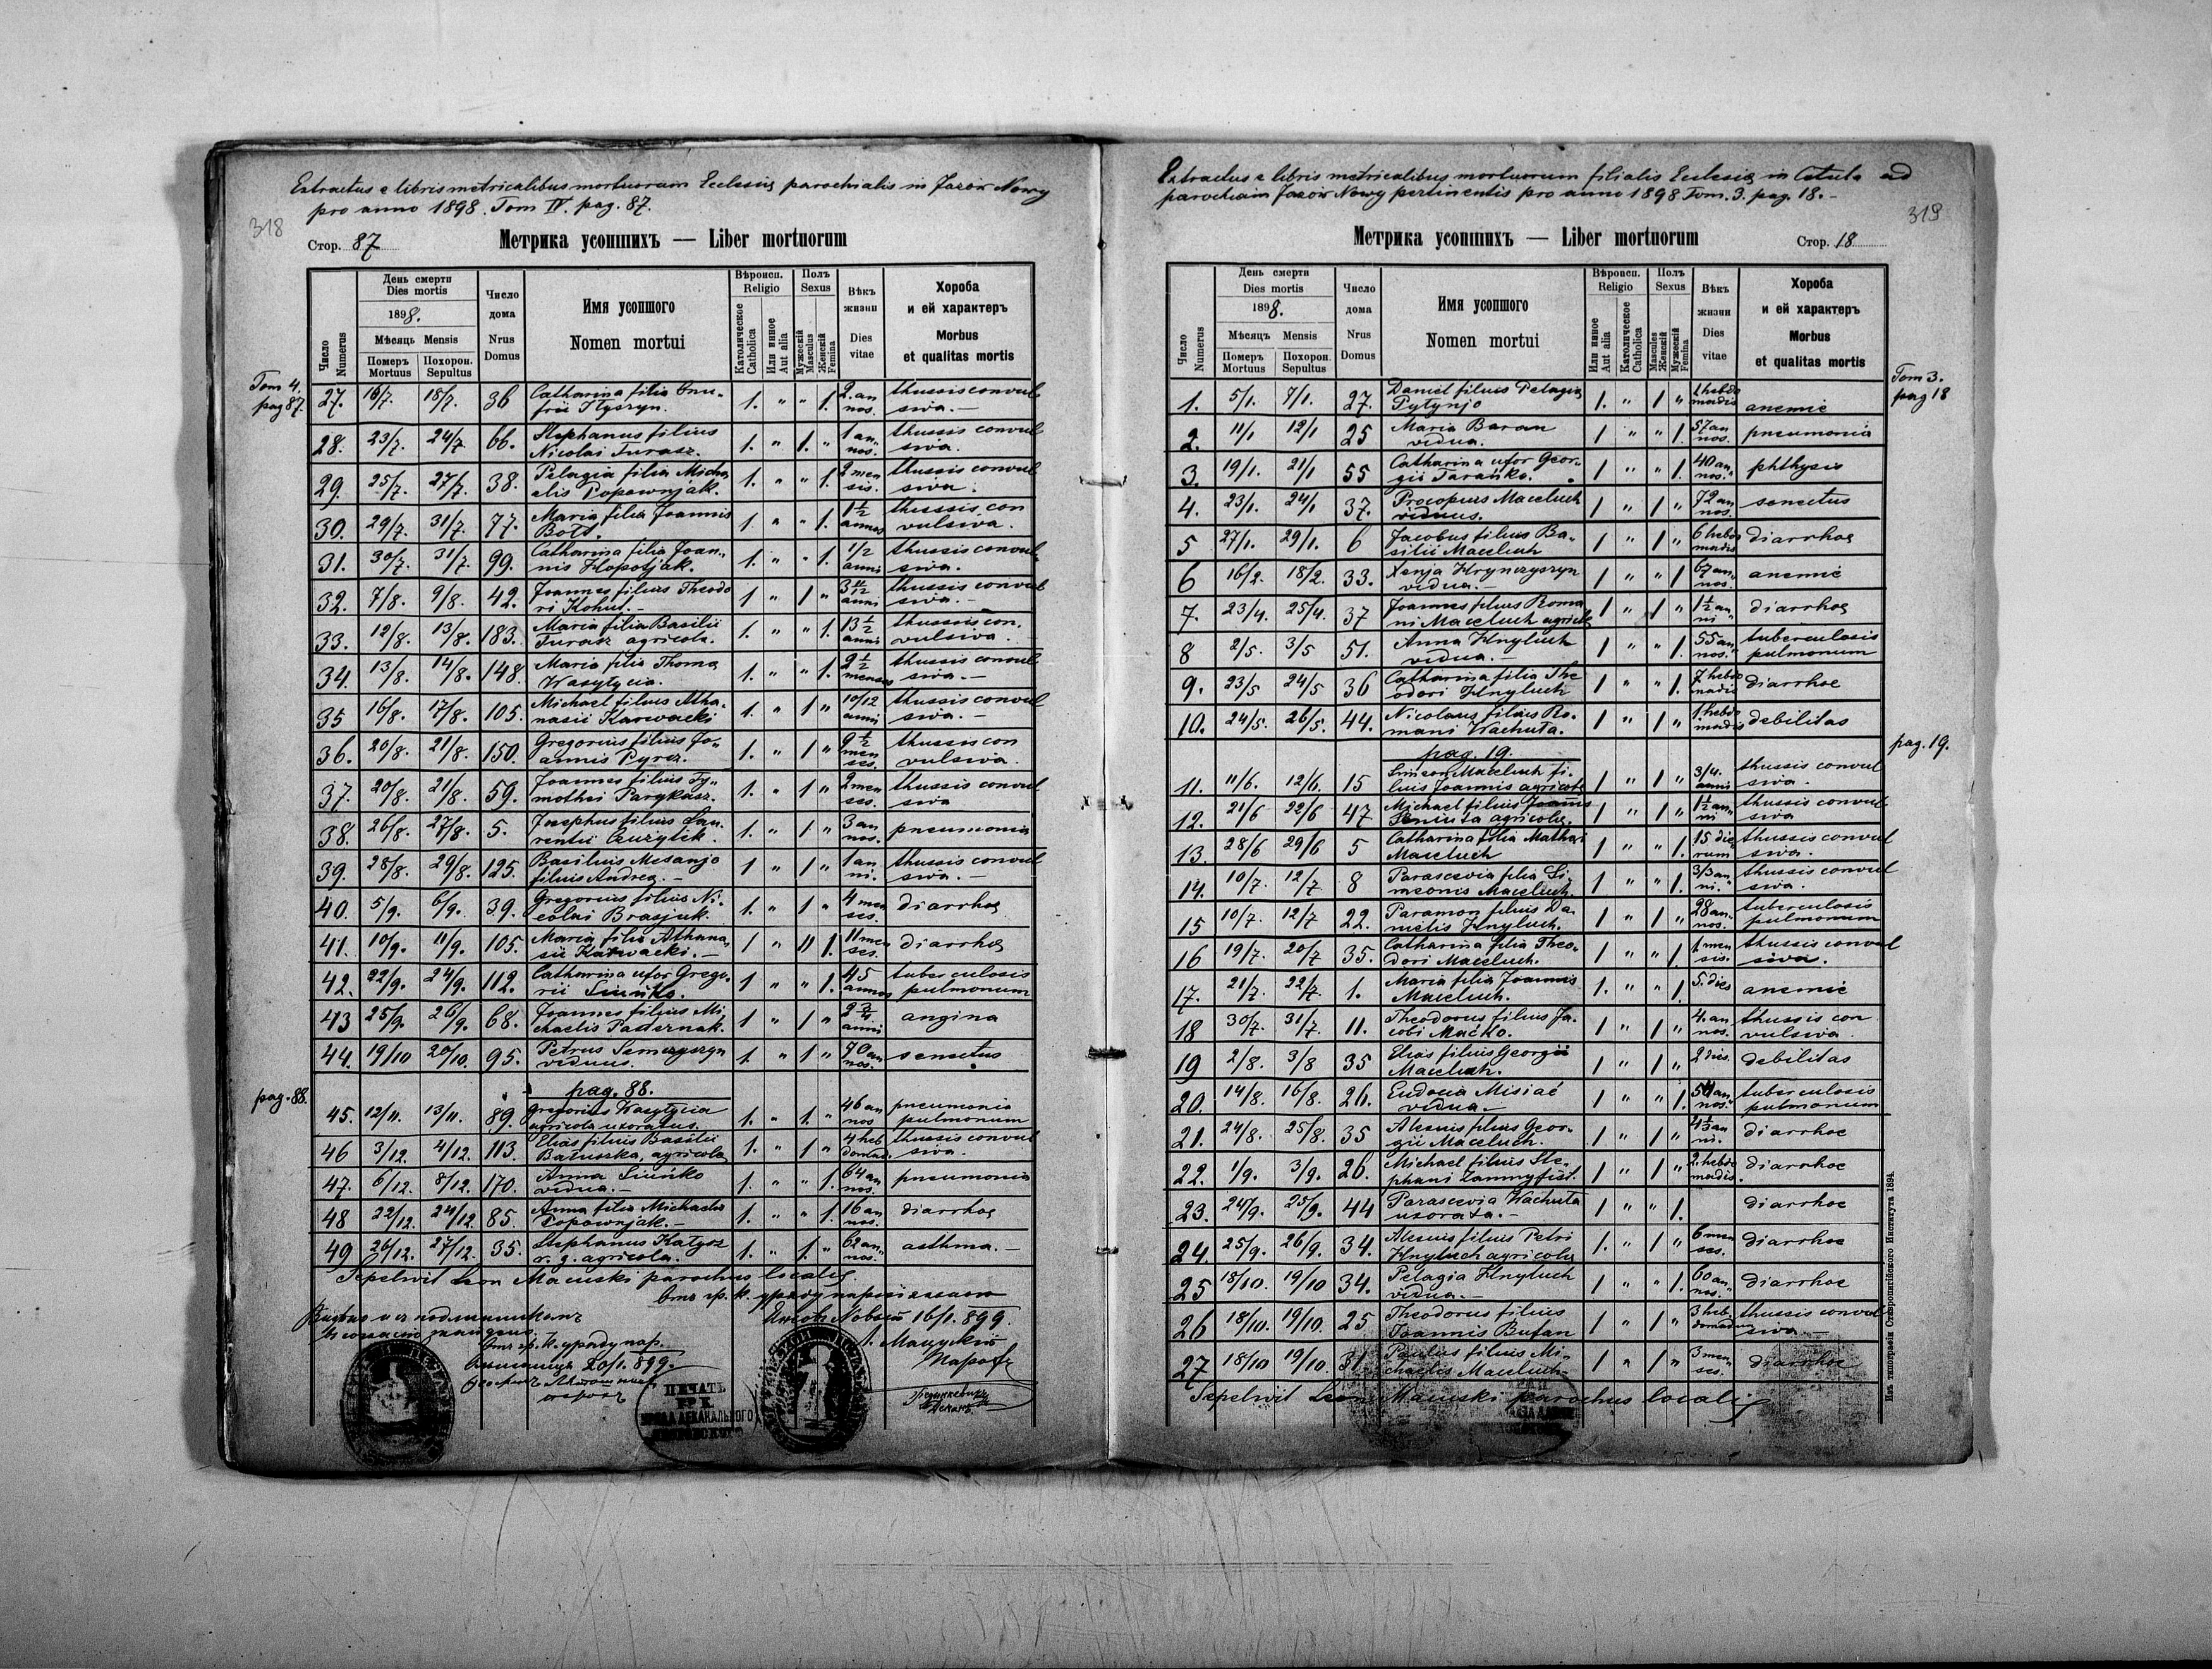 Extractus e libris metricalibus mortuorum Ecclesiæ parochialis in Jazów Nowy
pro anno 1898. Tom IV. pag. 87.
318
Стор. 87
Метрика усопшихъ — Liber mortuorum
Число Numerus
День смерти Dies mortis
1898.
Мѣсяць Mensis
Померъ Mortuus
Похорон. Sepultus
Число дома Nrus Domus
Имя усопшого Nomen mortui
Вѣроисп. Religio
Католическое Catholica
Или инное Aut alia
Полъ Sexus
Мужескій Masculus
Женскій Femina
Вѣкъ жизни Dies vitae
Хороба и ей характеръ Morbus et qualitas mortis
Tom 4. pag 87.
27. 16/7. 18/7. 36 Catharina filia Onu-
frii Hyszyn. 1. " " 1. 2. an nos. thussis convul siva.-
28. 23/7. 24/7 66. Stephanus filius
Nicolai Turasz. 1. " 1. " 1 an nos. thussis convul siva.
29. 25/7. 27/7. 38. Pelagia filia Micha
elis Popownjak. 1. " " 1. 2 men sis. thussis convul siva.
30. 29/7. 31/7. 77. Maria filia Joannis
Bołt. 1. " " 1. 1 1/2 annos thussis con vulsiva.
31. 30/7. 31/7. 99. Catharina filia Joan-
nis Hopotjak. 1. " " 1. 1/2 anni thussis convul siva.
32. 7/8. 9/8. 42. Joannes filius Theodo
ri Kohut.- 1 " 1 " anni thussis convul siva.-
33. 12/8. 13/8. 183. Maria filia Basilii
Turasz agricola. 1. " " 1. 13 1/2 anni thussis con vulsiva.
34. 13/8. 14/8. 148. Maria filia Thoma
Wasyłycia. 1. " " 1. 2 1/2 menses thussis convul siva.-
35 16/8. 17/8. 105. Michael filius Atha-
nasii Karwacki 1. " 1 " 10/12 anni thussis convul siva.-
36. 20/8. 21/8. 150. Gregorius filius Jo-
annis Pyrcz. 1. " 1 " 9 1/2 men ses. thussis con vulsiva.
37. 20/8. 21/8. 59. Joannes filius Ty-
mothei Parykasz. 1. " 1 " 2 men ses. thussis convul siva
38. 26/8. 27/8. 5. Josephus filius Lau-
rentii 1. " 1 " 3 an nos. pneumonia
39. 28/8. 29/8. 125. Basilius Mesanjo
filius Andreæ.- 1 " 1 " 1 an ni. thussis convul siva.-
40. 5/9. 6/9. 39. Gregorius filius Ni-
colai Brasjuk. 1. " 1 " 4 men ses. diarrhoe
41. 10/9. 11/9. 105. Maria filia Athana
sii Karwacki.- 1 " " 1. 11 men ses. diarrhoe
42. 22/9. 24/9. 112. Catharina uxor Grego-
rii Siuńko. 1 " " 1. 45 annos tuberculosis pulmonum
43 25/9. 26/9. 68. Joannes filius Mi-
chaelis Pasternak. 1 " 1 " anni angina
44. 19/10 20/10. 95. Petrus Semczyszyn
viduus. 1. " 1 " 70 an nos. senectus
pag. 88.
pag. 88.
45. 12/11. 13/11. 89. Gregorius Wasyłycia
agricola uxoratus. 1. " 1. " 46 an nos pneumonia pulmonum
46 3/12. 4/12. 113. Elias filius Basilii
Batuszka, agricola 1. " 1 " 4 heb domad. thussis convul siva.
47. 6/12. 8/12. 170. Anna Siuńko
vidua.- 1. " " 1. 64 an nos. pneumonia
48 22/12. 24/12. 85. Anna filia Michaelis
Popownjak.- 1. " " 1. 16 an nos. diarrhoe
49 26/12. 27/12. 35. Stephanus Katysz
r. g. agricola. 1. " 1. " 62 an nos. asthma.-
Sepelivit Leon Macuski parochus localis.
Отъ гр. к. уряду парохіяльного
Язовъ Новый 16/1. 899.
Л. Мацускій
Парохъ
Отъ гр. к. уряду пар.
20/1. 899.
ПЕЧАТЬ
Extractus e libris metricalibus mortuorum filialis Ecclesiæ in Cetula ad
parochiam Jazów Nowy pertinentis pro anno 1898 Tom. 3. pag. 18.-
319
Метрика усопшихъ — Liber mortuorum
Стор. 18
Число Numerus
День смерти Dies mortis
1898.
Мѣсяць Mensis
Померъ Mortuus
Похорон. Sepultus
Число дома Nrus Domus
Имя усопшого Nomen mortui
Вѣроисп. Religio
Или инное Aut alia
Католическое Catholica
Полъ Sexus
Masculus Женскій
Мужескій Femina
Вѣкъ жизни Dies vitae
Хороба и ей характеръ Morbus et qualitas mortis
Tom 3. pag 18
1. 5/1. 7/1. 27. Daniel filius Pelagiæ
Pytynjo 1. " 1 " hebdo madis anemie
2. 11/1 12/1 25 Maria Baran
vidua. 1 " " 1. 57 an nos. pneumonia
3. 19/1. 21/1 55 Catharina uxor Geor-
gii Tarańko. 1 " " 1. 40 an nos. phthysis
4. 23/1. 24/1 37. Procopius Macełuch
viduus. 1 " 1 " 72 an nos. senectus
5 27/1. 29/1. 6 Jacobus filius Ba-
silii Macełuch 1 " 1 " 6 hebdo madis diarrhoe
6 16/2. 18/2. 33. Xenja Hrynczyszyn
vidua.- 1 " " 1 67 an nos. anemie
7. 23/4. 25/4. 37 Joannes filius Roma
ni Macełuch agricola 1 " 1 " 1 1/2 an ni diarrhoe
8 2/5. 3/5 51. Anna Hnyłuch
vidua.- 1 " " 1. 55 an nos. tuberculosis pulmonum
9. 23/5 24/5 36 Catharina filia The
odori Hnyłuch 1 " " 1. 7 hebdo madis diarrhoe
10. 24/5. 26/5. 44. Nicolaus filius Ro-
mani Wachuta. 1 " 1 " 1 hebdo madis debilitas
pag. 19.
pag. 19.
11. 11/6. 12/6. 15 Simeon Macełuch fi-
lius Joannis agricola 1 " 1 " 3/4. anni thussis convul siva.
12. 21/6 22/6 47 Michael filius Joannis
Seniuta agricola. 1 " 1 " 1 1/2 an ni thussis convul siva
13. 28/6 29/6 5 Catharina filia Mathæi
Macełuch 1 " " 1. 15 die rum thussis convul siva.
14. 10/7. 12/7 8 Parascevia filia Si-
meonis Macełuch. 1 " " 1. an ni. thussis convul siva.
15 10/7. 12/7 22. Paramon filius Da-
nielis Hnyłuch. 1 " 1 " 28 an nos. tuberculosis pulmonum
16 19/7. 20/7 35. Catharina filia Theo-
dori Macełuch. 1 " " 1. 1 men sis. thussis convul siva.
17. 21/7. 22/7 1. Maria filia Joannis
Macełuch. 1. " " 1. 5. dies anemie
18 30/7. 31/7. 11. Theodorus filius Ja-
cobi Maćko. 1 " 1 " 4. an nos. thussis con vulsiva.
19 2/8. 3/8 35 Elias filius Georgii
Macełuch. 1 " 1 " 2 dies. debilitas
20. 14/8. 16/8. 26. Eudocia Misiać
vidua.- 1 " " 1. 54 an nos. tuberculosis pulmonum
21. 24/8. 25/8. 35 Alexius filius Geor-
gii Macełuch. 1 " 1 " an ni. diarrhoe
22. 1/9. 3/9. 26. Michael filius Ste-
phani 1 " 1 " 2. hebdo madis. diarrhoe
23. 24/9. 25/9. 44 Parascevia Wachuta
uxorata.- 1 " " 1. diarrhoe
24. 25/9. 26/9. 34. Alexius filius Petri
Hnyłuch agricola 1. " 1 " 6 men ses. diarrhoe
25 18/10. 19/10 34. Pelagia Hnyłuch
vidua.- 1 " " 1. 60 an nos. diarrhoe
26 18/10. 19/10. 25 Theodorus filius
Joannis Bufan 1 " 1 " 3 heb domadum thussis convul siva.-
27 18/10 19/10. 31. Paulus filius Mi-
chaelis Macełuch 1 " 1 " 3 men ses. diarrhoe
Sepelivit Leon Macuski parochus localis
Изъ типографіи Ставропигійского Института 1894.